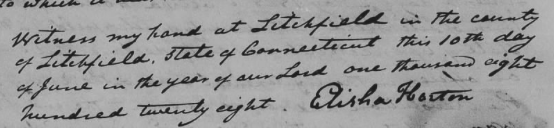 to which a
Witness my hand at Litchfield in the county
of Litchfield, State of Connecticut this 10th day
of June in the year of our Lord one thousand eight
hundred twenty eight. Elisha Horton